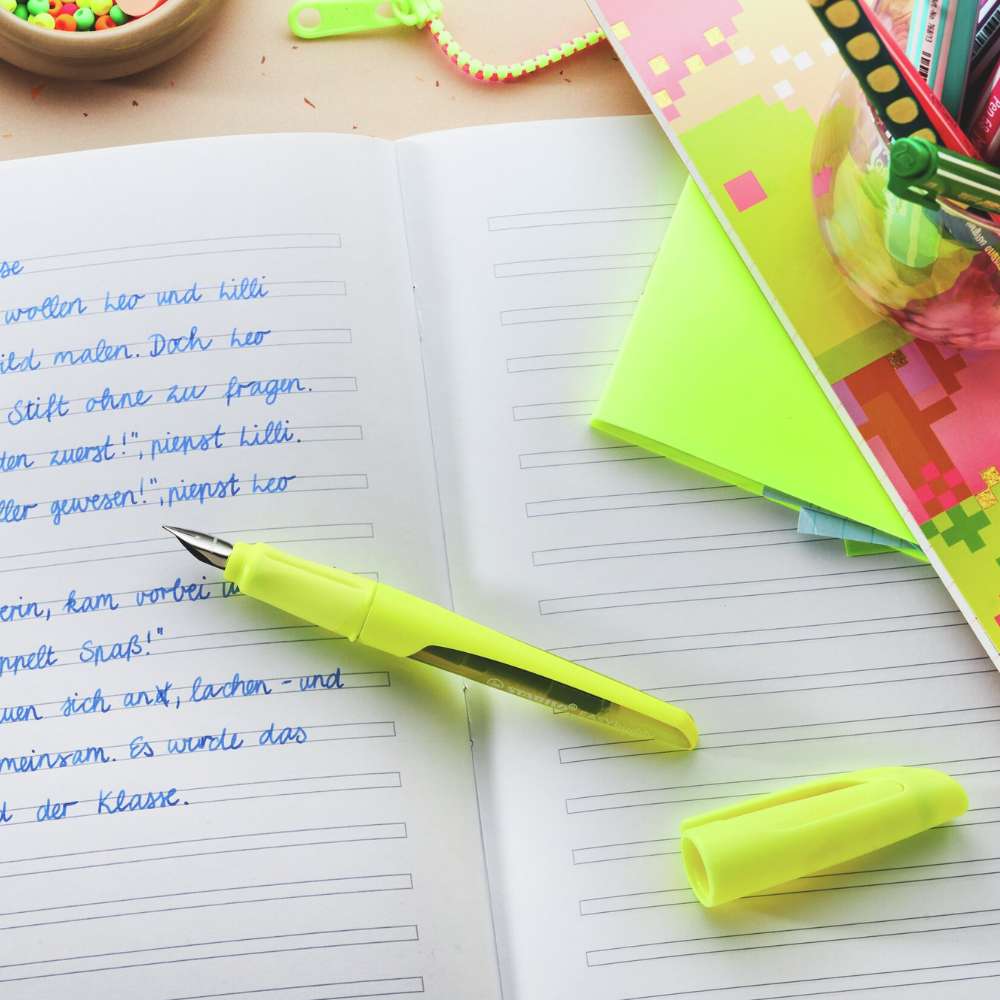 se
wollen Leo und Lilli
ild malen. Doch Leo
Stift ohne zu fragen.
den zuerst!", piepst Lilli.
ller gewesen!", piepst Leo
erin, kam vorbei u
ppelt Spaß!"
uen sich an, lachen - und
meinsam. Es wurde das
d der Klasse.
STABILO